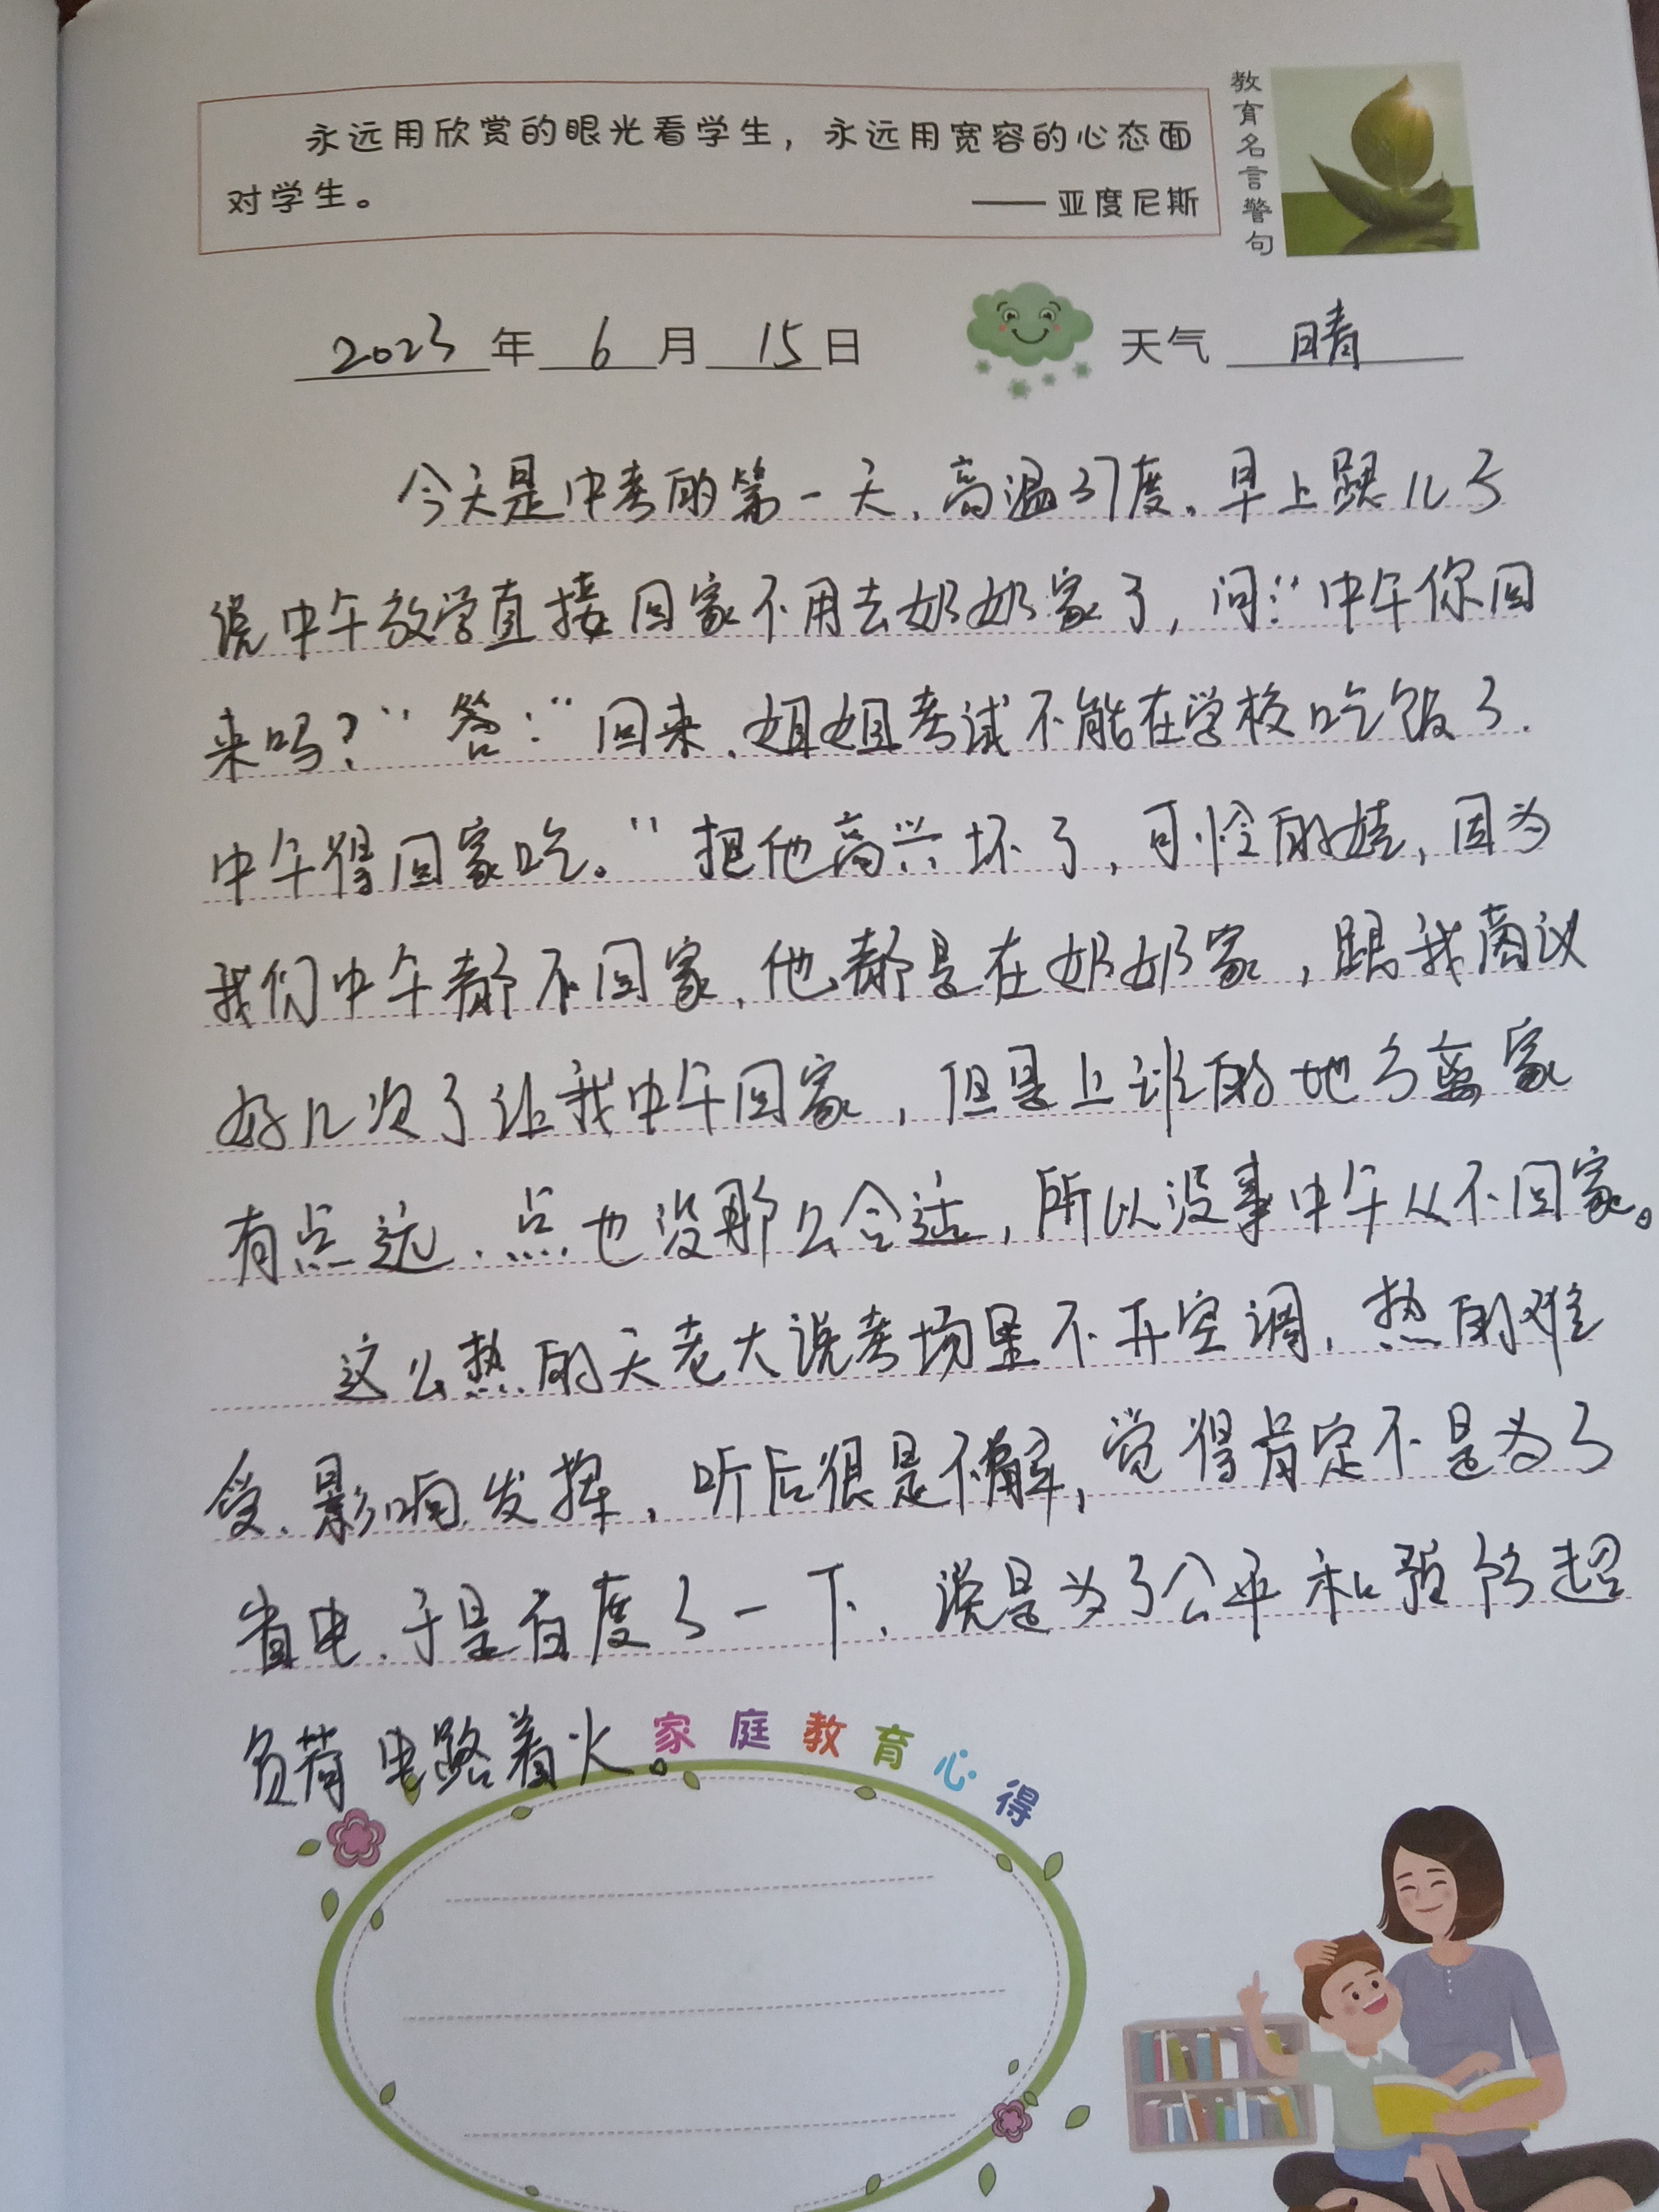 永远用欣赏的眼光看学生，永远用宽容的心态面
对学生。
——亚度尼斯
教育名言警句
2023年 6月 15日 天气 晴
今天是中考的第一天，高温37度。早上跟儿子
说中午放学直接回家不用去奶奶家了，问：“中午你回
来吗？”答：“回来，姐姐考试不能在学校吃饭了.
中午得回家吃。”把他高兴坏了，可怜的娃，因为
我们中午都不回家，他都是在奶奶家，跟我商议
好几次了让我中午回家，但是上班的地方离家
有点远，点也没那么合适，所以没事中午从不回家。
这么热的天老大说考场里不开空调，热的难
受，影响发挥，听后很是不解，觉得肯定不是为了
省电，于是百度了一下，说是为了公平和预防超
负荷电路着火。
家庭教育心得